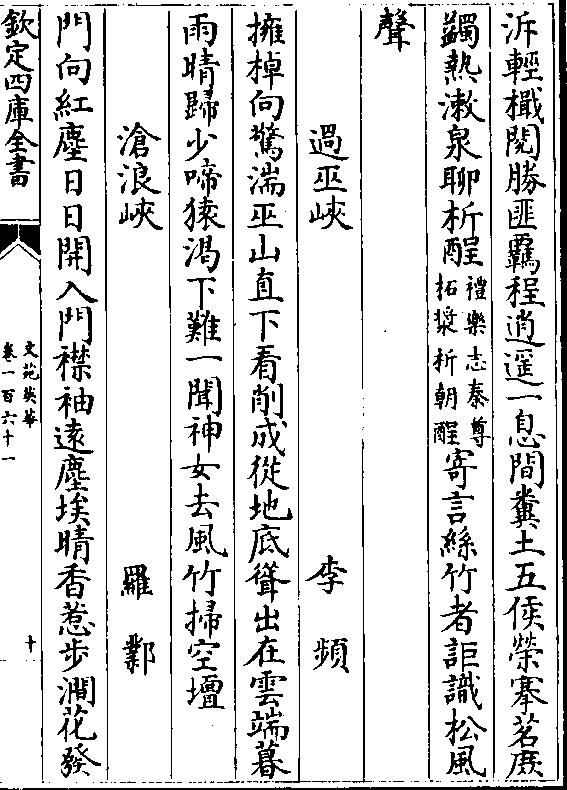 泝輕檝閱勝匪羈程逍遥一息間糞土五侯榮搴茗庪
蠲熱漱泉聊析酲禮樂志泰尊柘漿析朝酲寄言絲竹者詎識松風
聲
過巫峽 李頻
擁棹向驚湍巫山直下看削成從地底聳出在雲端暮
雨晴歸少啼猿渴下難一聞神女去風竹掃空壇
滄浪峽 羅鄴
門向紅塵日日開入門襟袖遠塵埃晴香惹步澗花發
欽定四庫全書
文苑英華
卷一百六十一
十